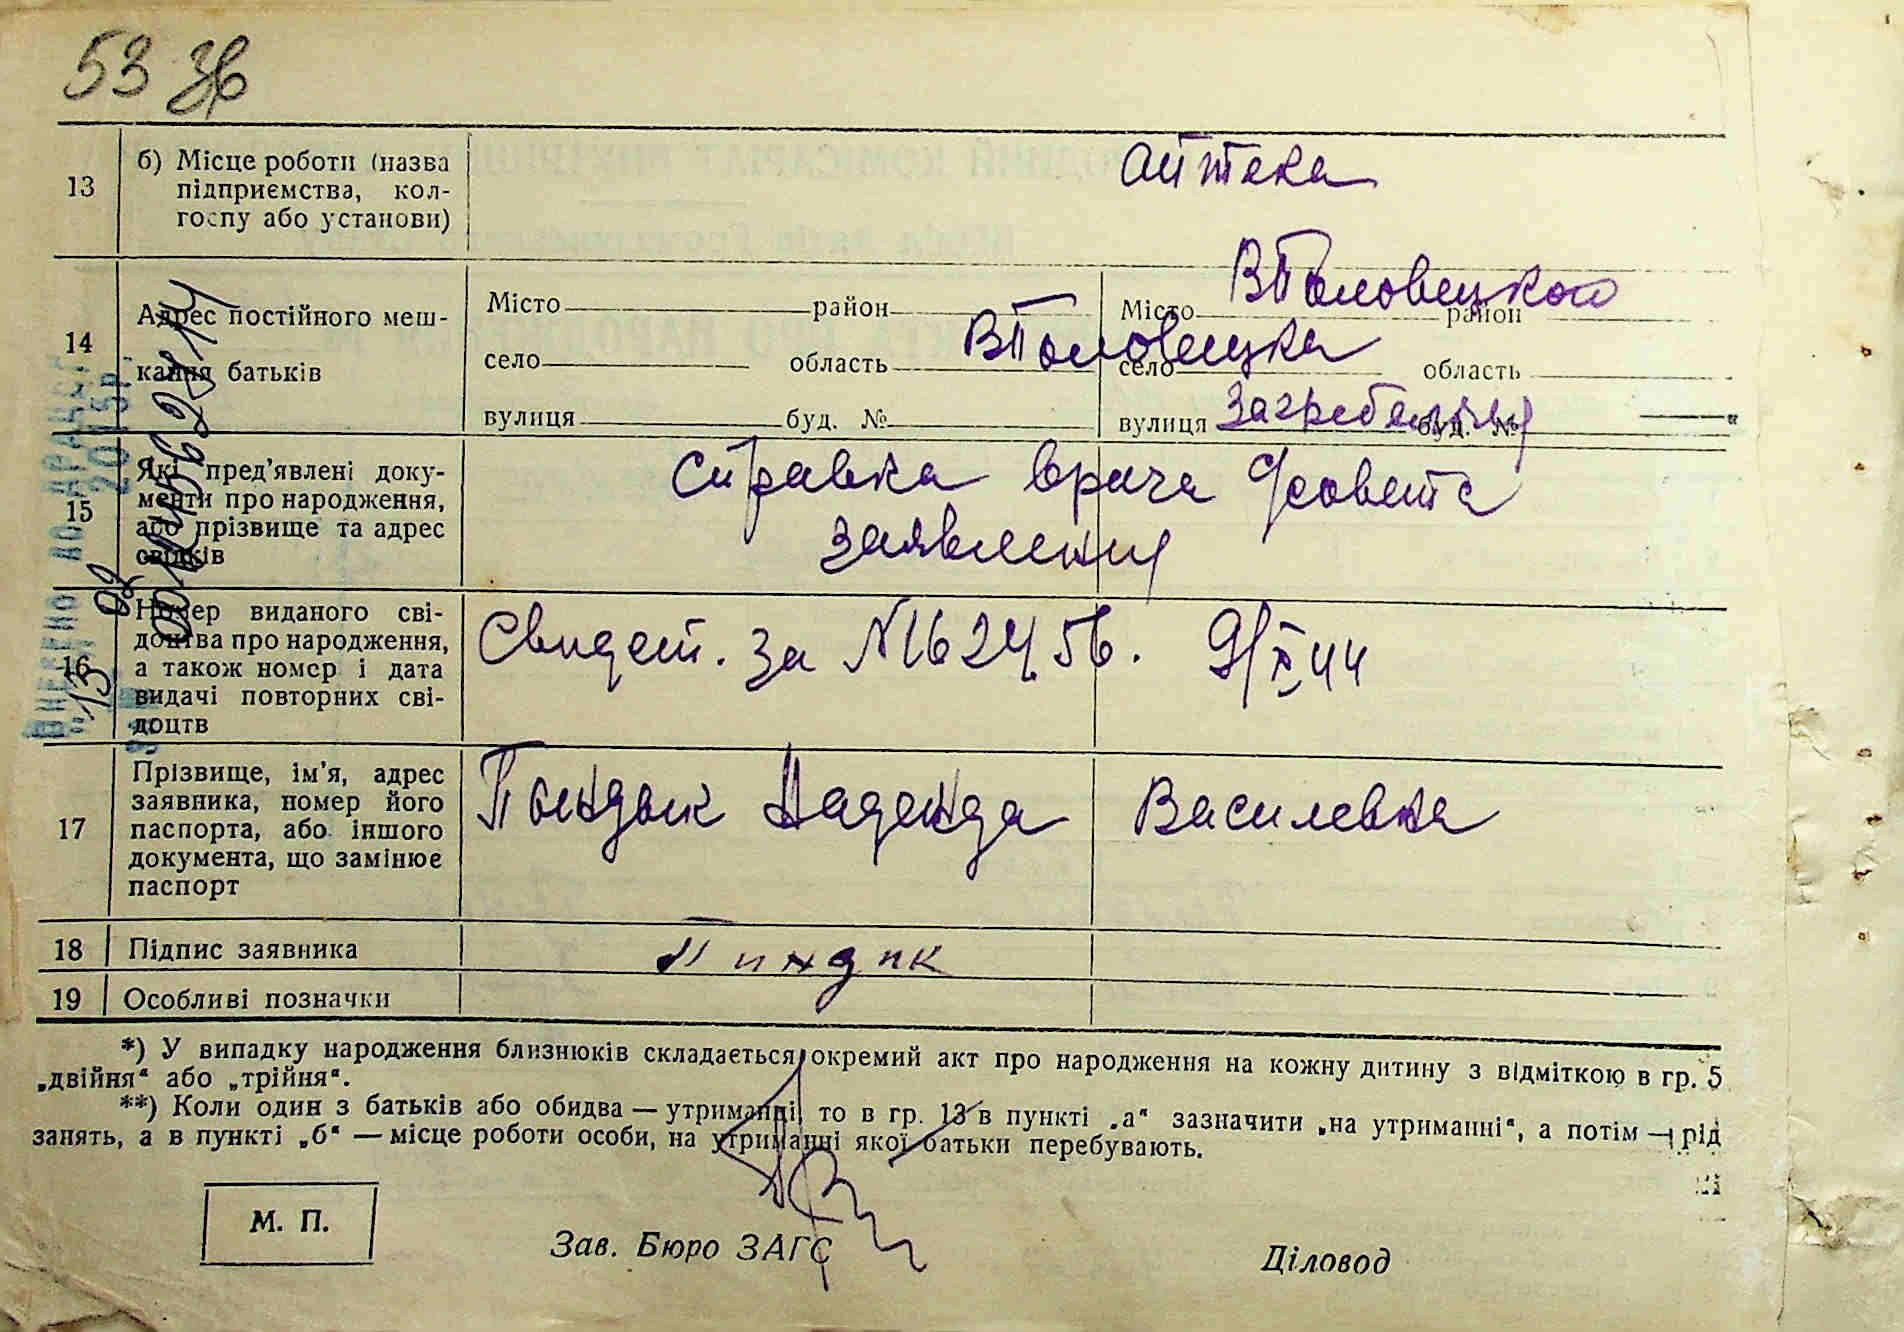 53 зв
13 б) Місце роботи (назва підприємства, колгоспу або установи)
Аптека
14 Адрес постійного мешкання батьків
Місто район
село область
вулиця буд. №
Місто район
село область
вулиця буд. №
ВПоловецкого
ВПоловецка
15 Які пред'явлені документи про народження, або прізвище та адрес свідків
Справка врача
заявления
16 Номер виданого свідоцтва про народження, а також номер і дата видачі повторних свідоцтв
Свидет. за №
17 Прізвище, ім'я, адрес заявника, номер його паспорта, або іншого документа, що замінює паспорт
Надежда Василевна
18 Підпис заявника
Пиндик
19 Особливі позначки
*) У випадку народження близнюків складається окремий акт про народження на кожну дитину з відміткою в гр. 5
„двійня“ або „трійня“.
**) Коли один з батьків або обидва — утриманці, то в гр. 13 в пункті „а“ зазначити „на утриманні“, а потім — рід
занять, а в пункті „б“ — місце роботи особи, на утриманні якої батьки перебувають.
М. П.
Зав. Бюро ЗАГС
Діловод